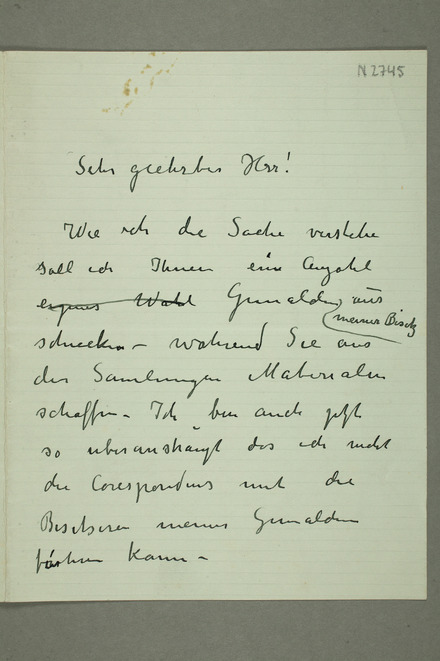 N 2745
Sehr geehrter Herr!
Wie ich die Sache verstehe
soll ich Ihnen eine Anzahl
eigener Wahl Gemalden aus
meiner Besitz
schicken – während Sie aus
den Samlungen Materialen
schaffen – Ich bin auch jetzt
so uberanstrangt das ich nicht
die Corespondens mit die
Besitseren meiner Gemalden
führen kann –